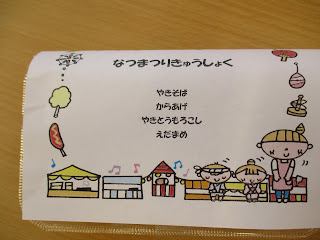 なつまつりきゅうしょく
やきそば
からあげ
やきとうもろこし
えだまめ